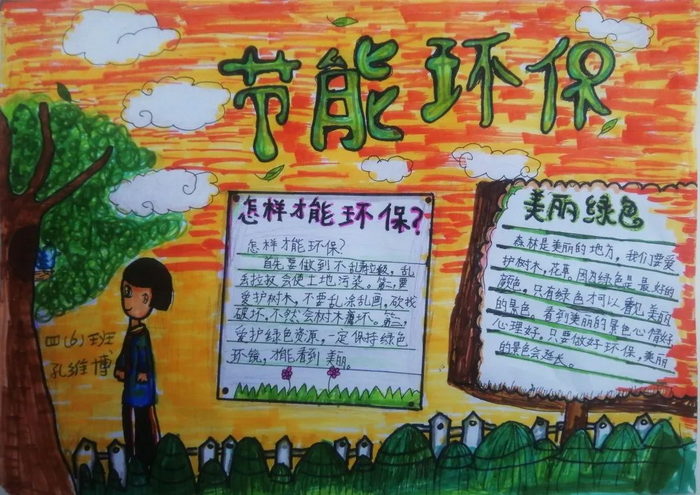 节能环保
怎样才能环保?
怎样才能环保?
首先要做到不乱丢垃圾,乱
丢垃圾会使土地污染。第二,要
爱护树木,不要乱涂乱画,砍伐
破坏,不然会树木毁坏。第三,
爱护绿色资源,一定保持绿色
环境,才能看到美丽。
美丽绿色
森林是美丽的地方,我们要爱
护树木,花草,因为绿色是最好的
颜色,只有绿色才可以看见美丽
的景色,看到美丽的景色心情好
心理好。只要做好环保,美丽
的景色会延长。
四(6)班
孔维博